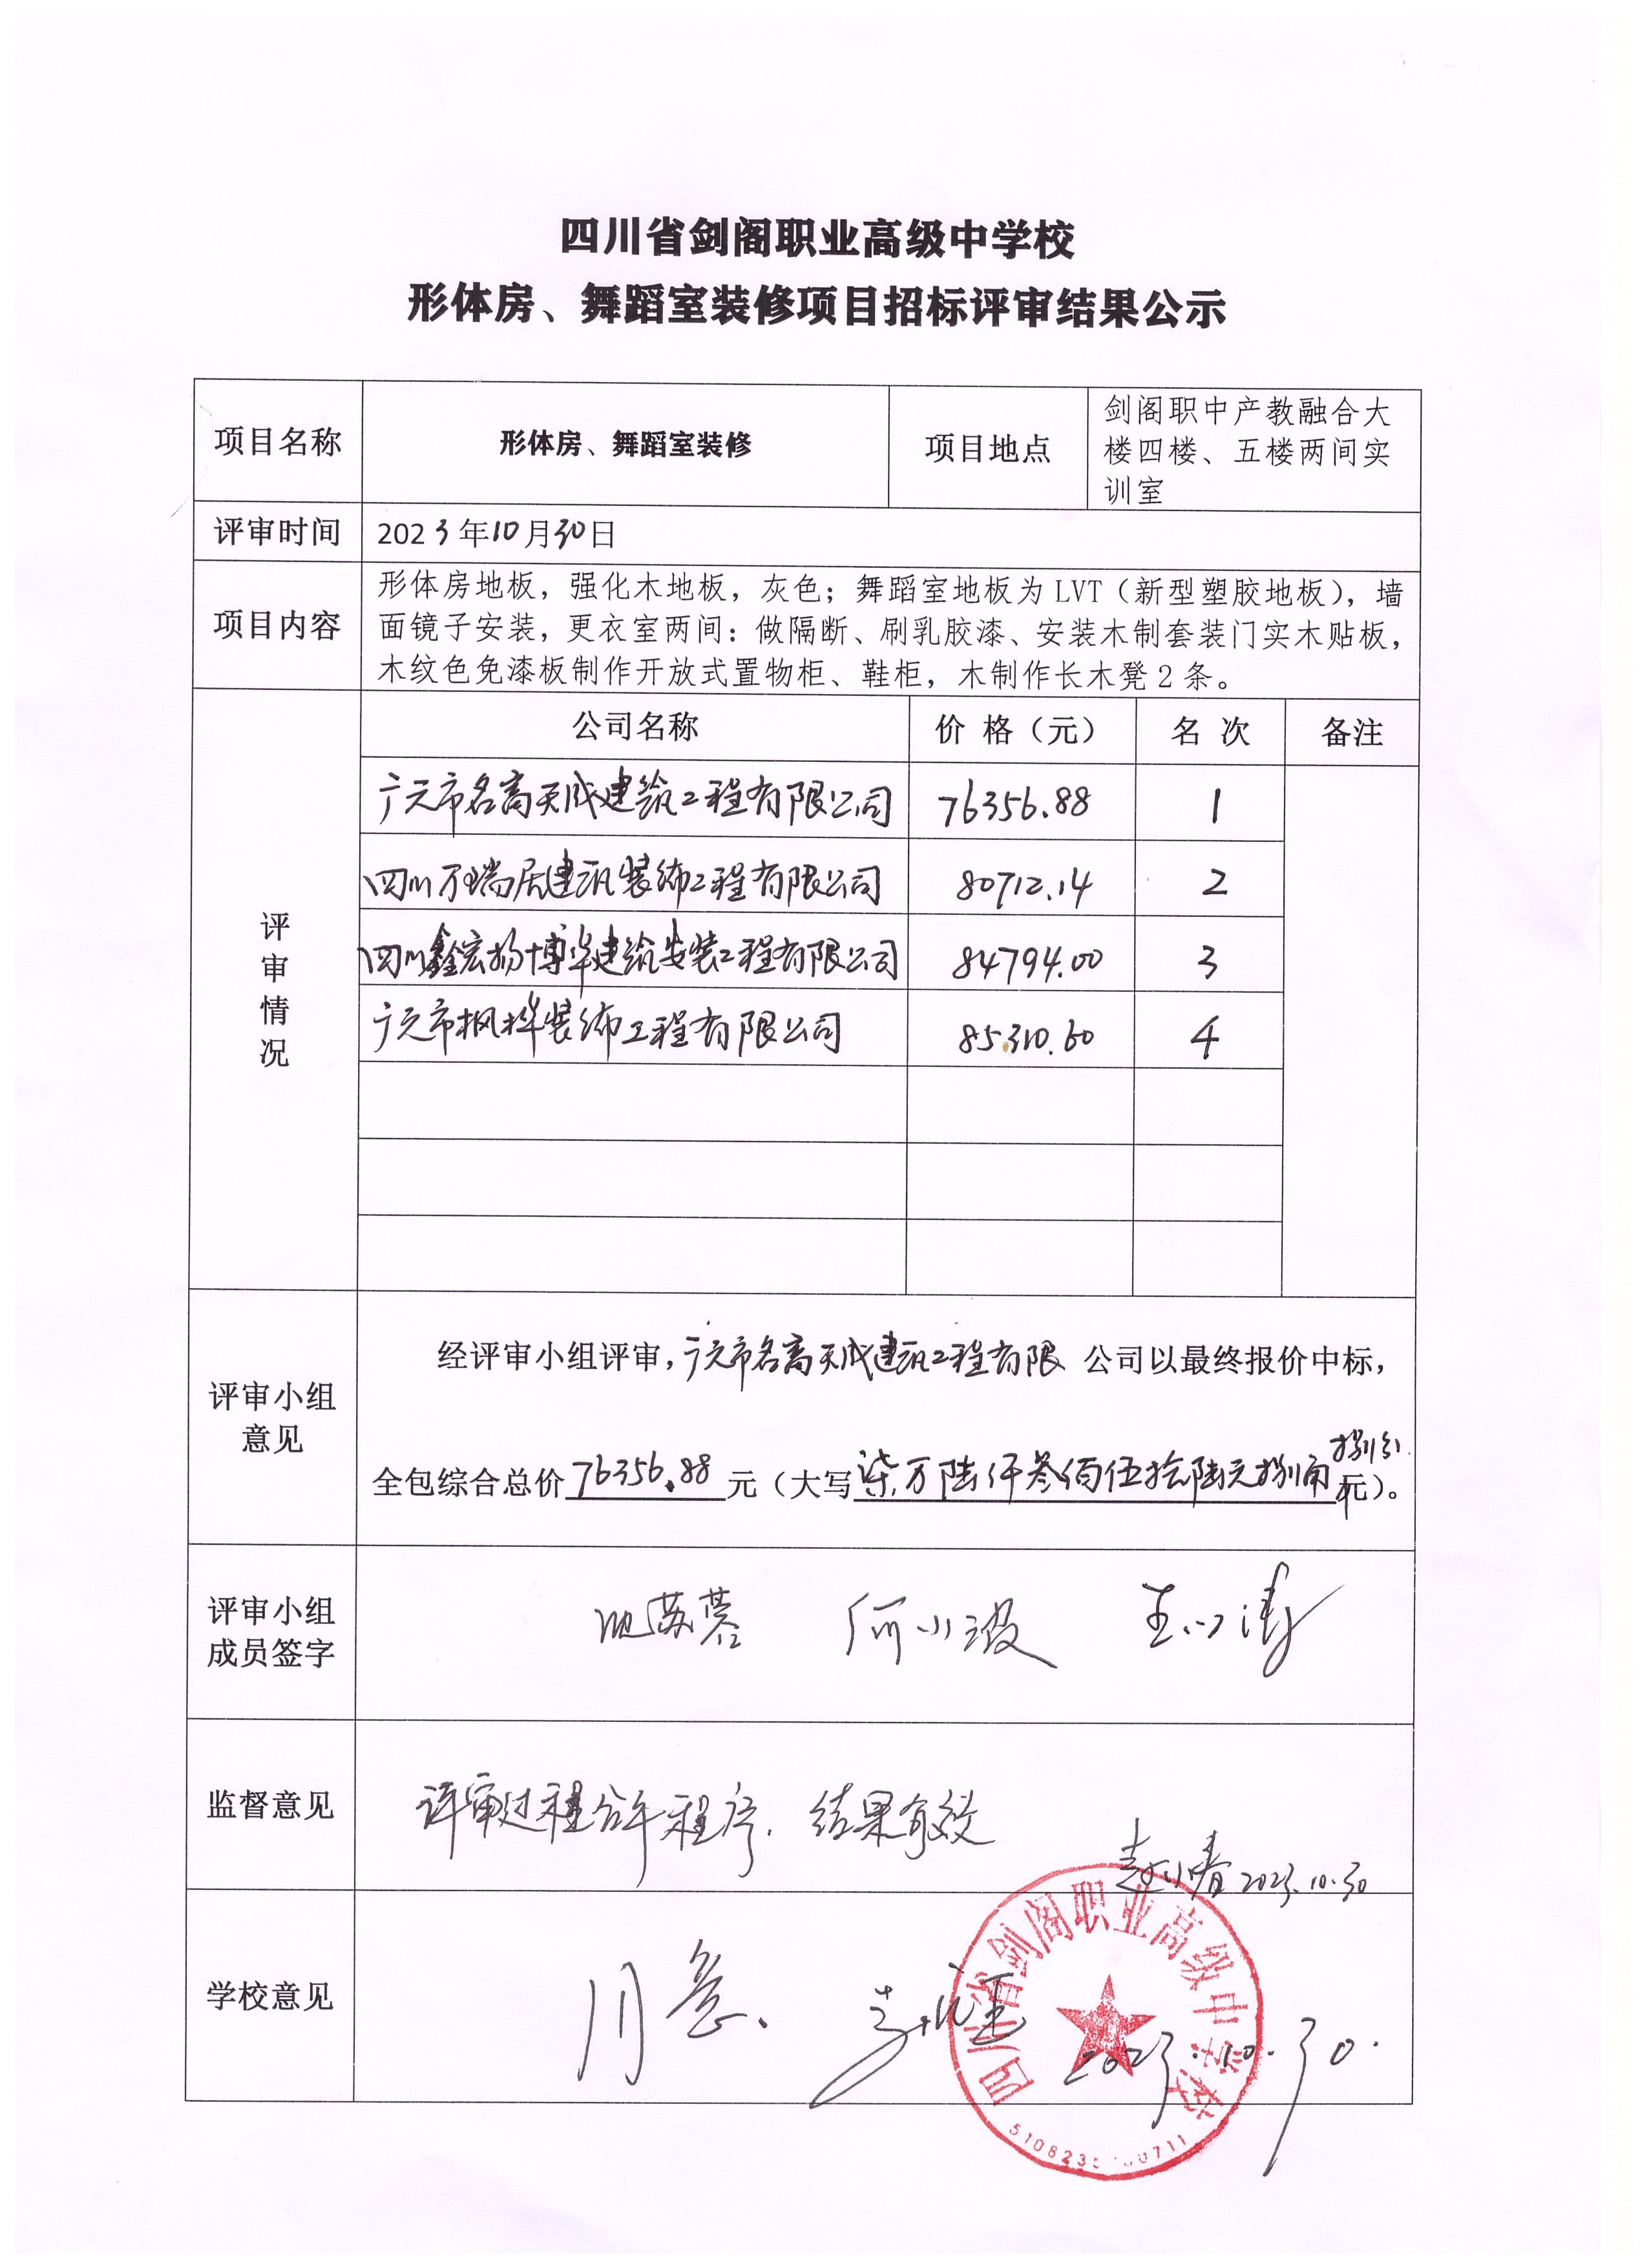 四川省剑阁职业高级中学校
形体房、舞蹈室装修项目招标评审结果公示
项目名称
形体房、舞蹈室装修
项目地点
剑阁职中产教融合大
楼四楼、五楼两间实
训室
评审时间
2023年10月30日
项目内容
形体房地板，强化木地板，灰色；舞蹈室地板为LVT（新型塑胶地板），墙
面镜子安装，更衣室两间：做隔断、刷乳胶漆、安装木制套装门实木贴板，
木纹色免漆板制作开放式置物柜、鞋柜，木制作长木凳2条。
评审情况
公司名称 价 格（元） 名 次 备注
广元市名高天成建筑工程有限公司 76356.88 1
四川万瑞居建筑装饰工程有限公司 80712.14 2
四川鑫宏扬博华建筑安装工程有限公司 84794.00 3
广元市枫桦装饰工程有限公司 85310.60 4
评审小组
意见
经评审小组评审，广元市名高天成建筑工程有限 公司以最终报价中标，
全包综合总价76356.88元（大写柒万陆仟叁佰伍拾陆元捌角捌分）。
评审小组
成员签字
何小波
监督意见
评审过程合乎程序，结果有效
2023.10.30
学校意见
同意.
2023.10.30.
四川省剑阁职业高级中学校